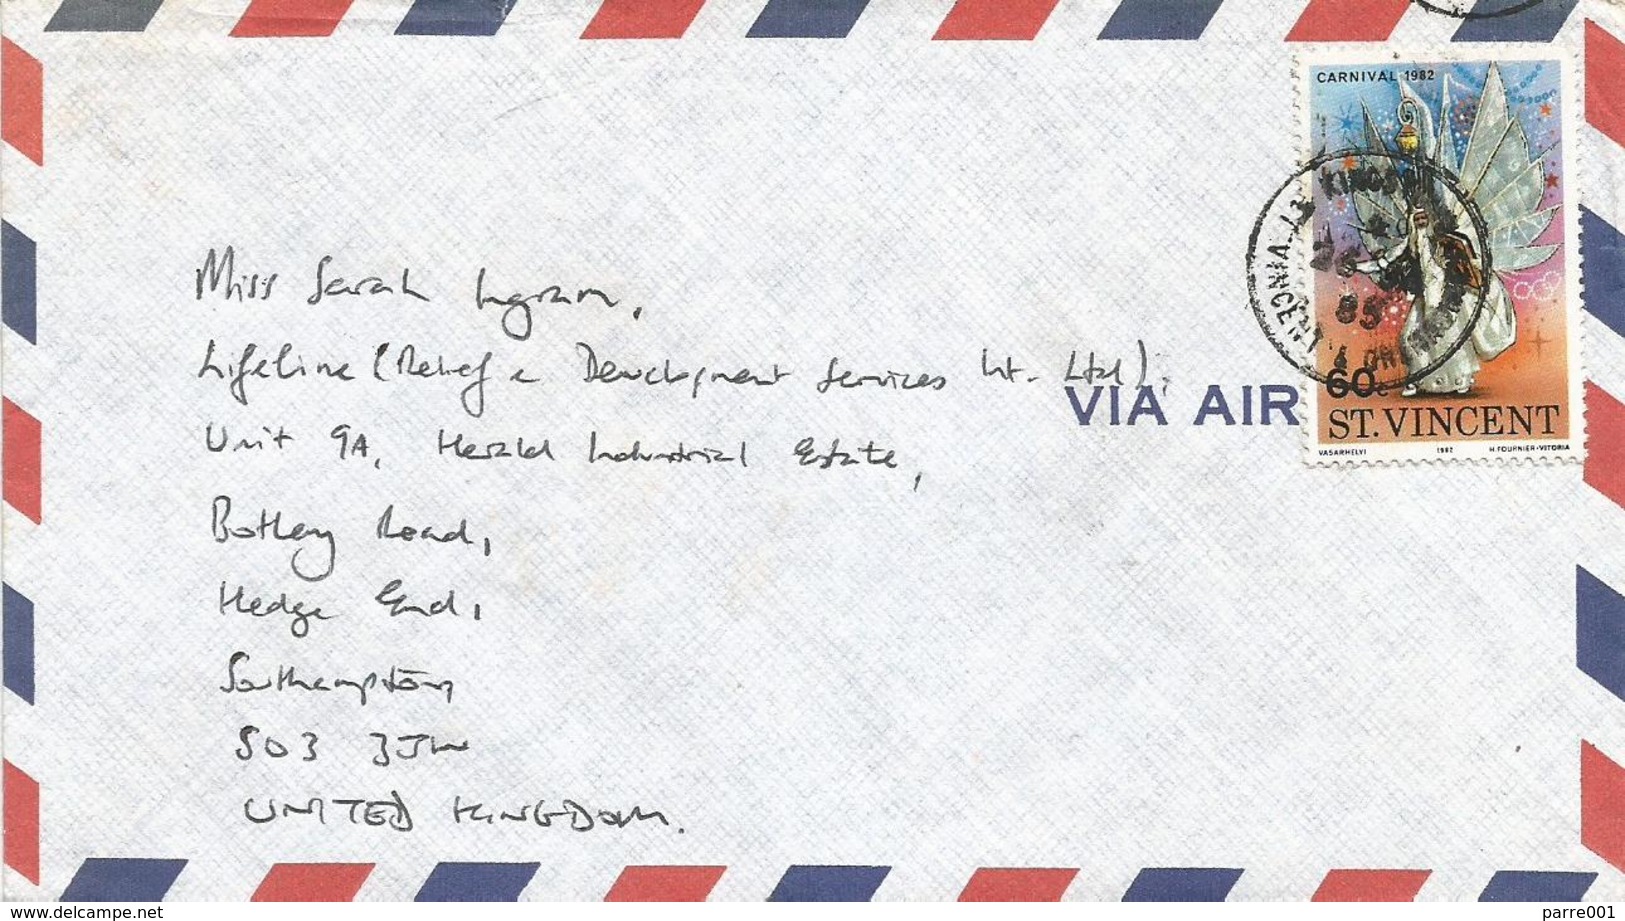 CARNIVAL 1982
Miss Sarah Ingram,
Lifeline (Relief & Development Services Int. Ltd),
VIA AIR
60c
ST. VINCENT
VASARHELYI 1982 H. FOURNIER-VITORIA
Unit 9A, Herald Industrial Estate,
Botley Road,
Hedge End,
Southampton
SO3 3JW
UNITED KINGDOM.
85
delcampe.net
parre001